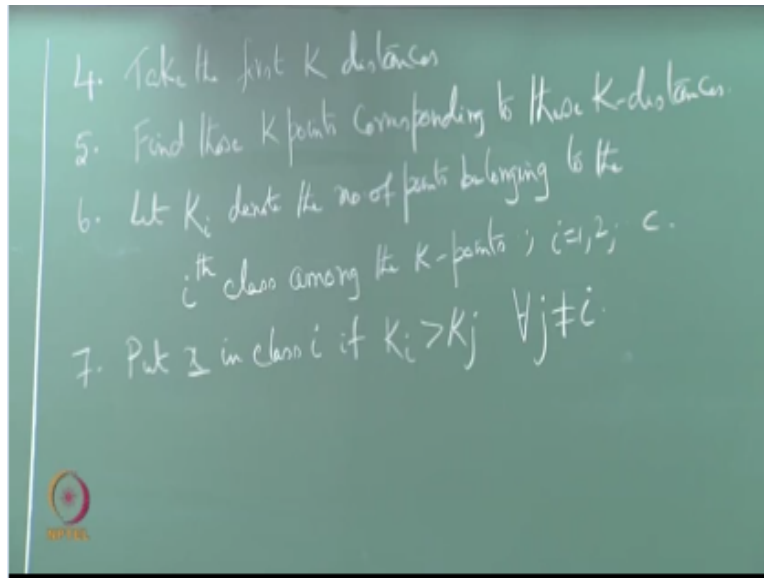 4. Take the first K distances
5. Find those K points Corresponding to these K-distances.
6. Let Ki denote the no of points belonging to the
ith class among the K-points ; i=1,2, c.
7. Put x in class i if Ki > Kj ∀ j ≠ i.
NPTEL